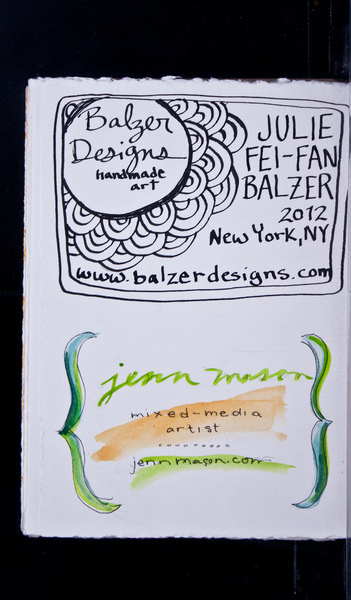 Balzer
Designs
handmade
art
JULIE
FEI-FAN
BALZER
2012
New York, NY
www.balzerdesigns.com
jenn mason
mixed-media
artist
jennmason.com